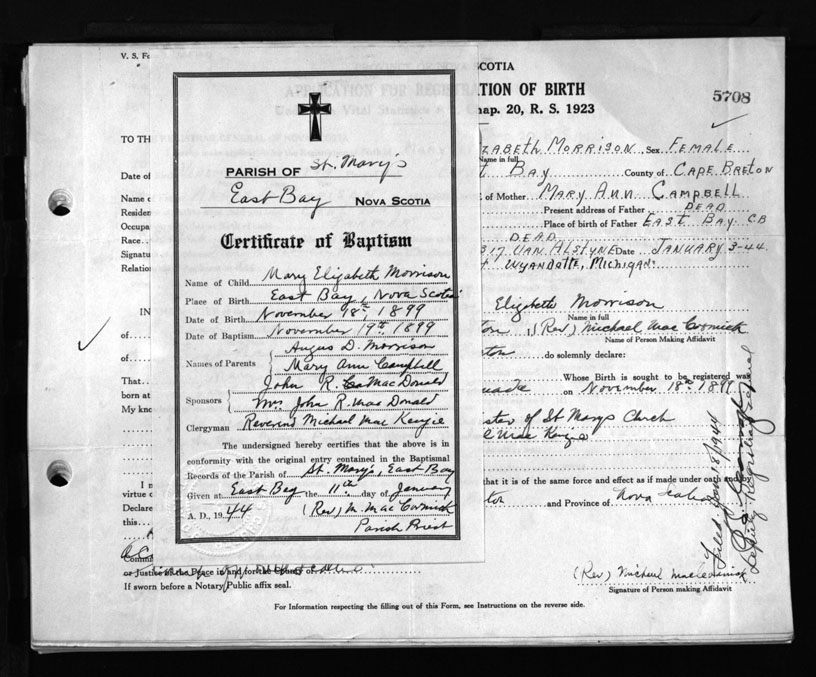 V. S. Fo
SCOTIA
TION OF BIRTH
hap. 20, R. S. 1923
5708
TO TH
ZABETH MORRISON, Sex FEMALE
Name in full
Date of
T BAY County of CAPE BRETON
Name o
of Mother MARY ANN CAMPBELL
Residen
Present address of Father DEAD
Occupa
Place of birth of Father EAST BAY. CB
Race
DEAD
Signatu
317 VAN ALSTYNE Date JANUARY 3-44.
Relatio
WYANDOTTE, MICHIGAN.
IN
Elizabeth Morrison
Name in full
of
ton, (Rev) Michael Mac Cormick
Name of Person Making Affidavit
of
ton do solemnly declare:
That
Whose Birth is sought to be registered was
born at
on November 18th 1899
My kno
ster of St Marys Church
Mac Kenzie
I m
that it is of the same force and effect as if made under oath and by
virtue o
ton and Province of Nova Scotia
Declare
this
Filed Jan 18/1944
Deputy Registrar General
Commi
or Justice of the Peace in and for the County of
If sworn before a Notary Public affix seal.
(Rev) Michael MacCormick
Signature of Person making Affidavit
For Information respecting the filling out of this Form, see Instructions on the reverse side.
PARISH OF St. Mary's
East Bay NOVA SCOTIA
Certificate of Baptism
Name of Child Mary Elizabeth Morrison
Place of Birth East Bay, Nova Scotia
Date of Birth November 18th, 1899
Date of Baptism November 19th, 1899
Names of Parents { Angus D. Morrison
Mary Ann Campbell
Sponsors { John R. MacDonald
Mrs. John R. MacDonald
Clergyman Reverend Michael MacKenzie
The undersigned hereby certifies that the above is in
conformity with the original entry contained in the Baptismal
Records of the Parish of St. Mary's, East Bay
Given at East Bay the 11th day of January
A. D., 1944 (Rev) M. MacCormick
Parish Priest